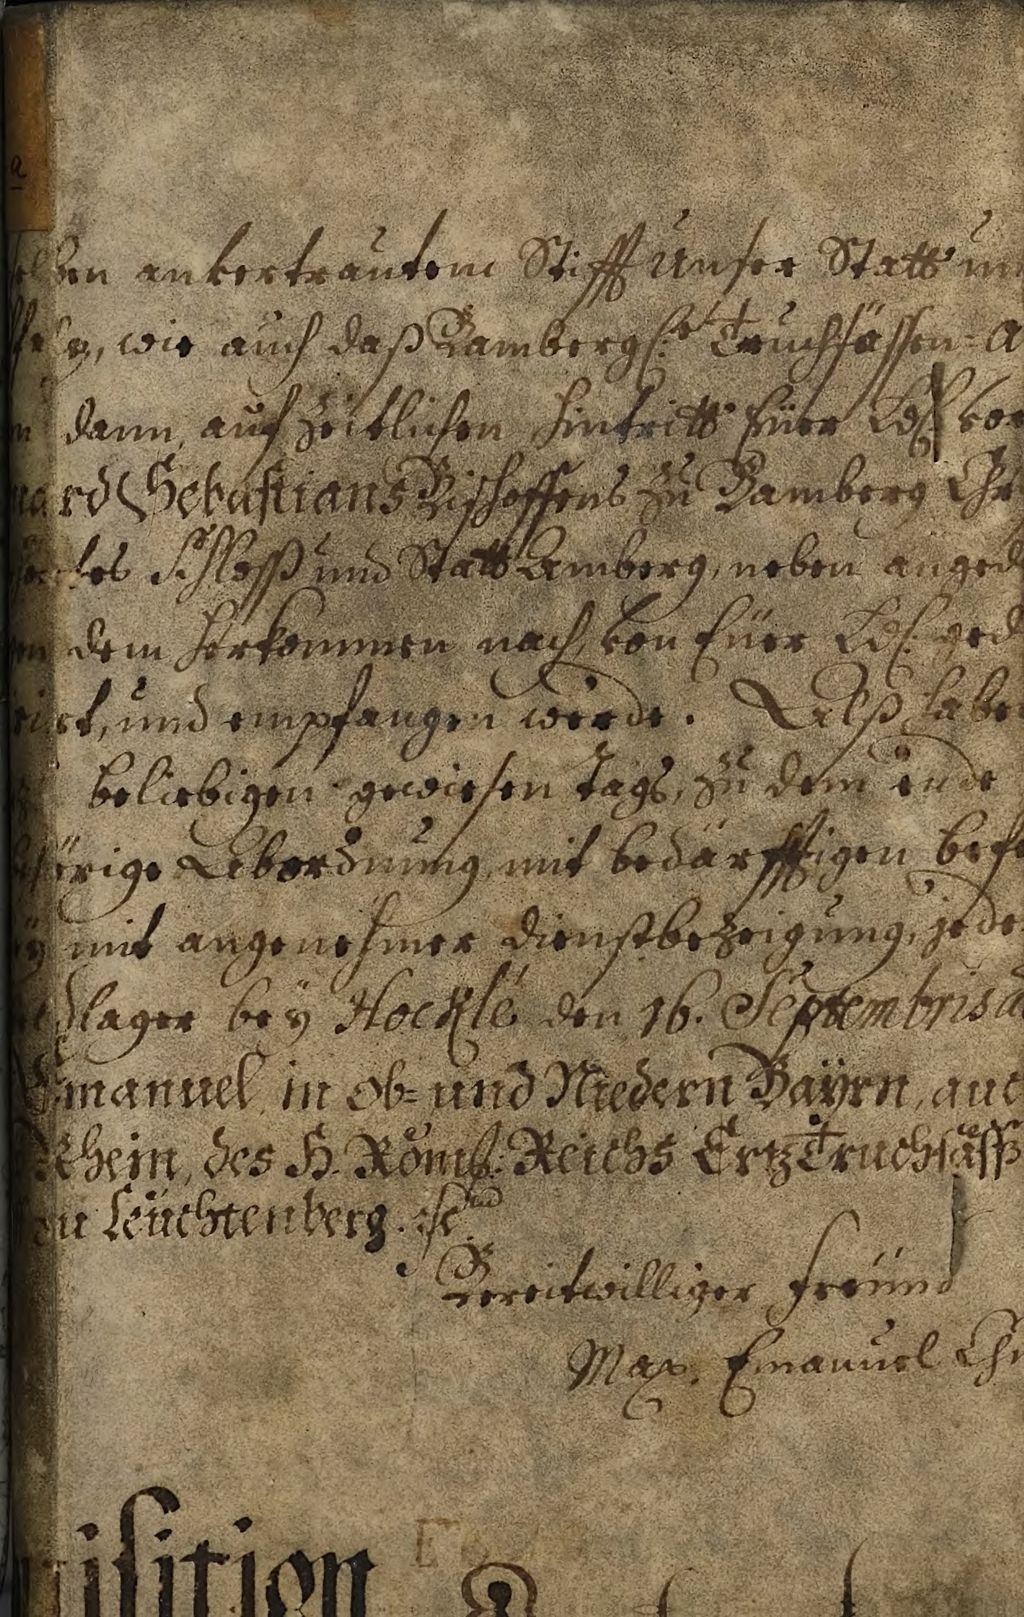 ben anvertrautem Stifft Unser Statt un
wie auch daß Bambergs: Truchsässen= A
dann, auf zeitlichen hintritt Euer Ld: vor
ard Sebastians Bischoffens zu Bamberg Chr
tes Schloß und Statt Amberg, neben anged
dem herkommen nach, von Euer Ld: ged
rt, und empfangen werde. Alß habe
beliebigen gewiesen tags, zu dem ende
hörige Abordnung, mit bedärfftigen befe
mit angenehmer dienstbezeigung, jede
lager bey Hocklé den 16. Septembris a
Emanuel, in Ob= und Niedern Bayrn, auc
Rhein, des H. Römß: Reichs Ertz Truchsäß
zu Leuchtenberg.
Bereitwilliger freund
Max. Emanuel Chu
uisition